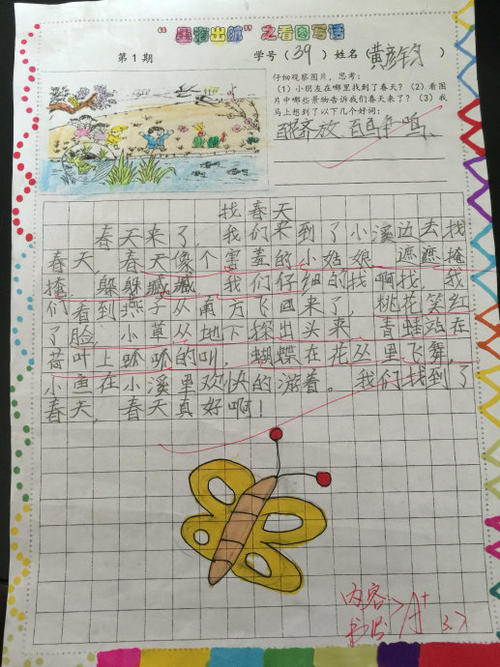 "果物出版"之看图写话
第1期
学号(39)姓名(黄彦钧)
仔细观察图片,思考:
(1)小朋友在哪里找到了春天?(2)看图
片中哪些景物告诉我们春天来了?(3)我
马上想到了以下几个好词:
百花齐放 百鸟争鸣、
找春天
春天来了,我们来到了小溪边去找
春天,春天像个害羞的小姑娘,遮遮掩
掩,躲躲藏藏。我们仔细的找啊找,我
们看到燕子从南方飞回来了,桃花笑红
了脸,小草从地下探出头来,青蛙站在
荷叶上呱呱的叫,蝴蝶在花丛里飞舞,
小鱼在小溪里欢快的游着。我们找到了
春天,春天真好啊!
内容
书写
A+
3.7